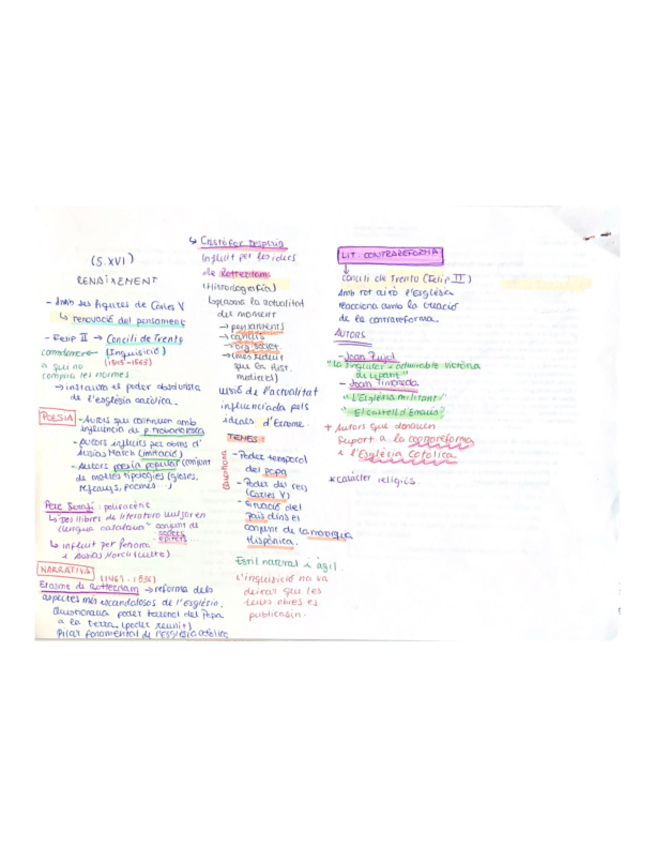 (S. XVI)
RENAIXEMENT
- Amb les figures de Carles V
↳ renovació del pensament
- Felip II → Concili de Trento
(Inquisició)
(1545-1563)
a qui no
compleix les normes
→ instaura el poder absolutista
de l'església catòlica.
POESIA
- Autors que continuen amb
influència de p. trobadoresca
- Autors influïts per obres d'
Ausiàs March (imitació)
- Autors poesia popular (conjunt
de moltes tipologies (gloses,
refranys, poemes...)
Pere Serafí:
↳ "Dos llibres de literatura vulgar en
llengua catalana" conjunt de
↳ influït per Petrarca
i Ausiàs March (culte)
NARRATIVA
Erasme de Rotterdam → reforma dels
aspectes més escandalosos de l'església.
Qüestionava poder terrenal del Papa
a la terra. (poder reunit)
Pilar fonamental de l'església catòlica
↳ Cristòfor Despuig
Influït per les idees
de Rotterdam
(Historiografia)
↳ plasma la actualitat
del moment
→ pensaments
→ org. societ.
→ (més reduït
que la hist.
medieval)
visió de l'actualitat
influenciada pels
ideals d'Erasme.
TEMES:
Qüestiona
- Poder temporal
del papa
- Poder del rei
(Carles V)
- Situació del
País dins el
conjunt de la monarquia
Hispànica.
Estil natural i àgil.
L'inquisició no va
deixar que les
seves obres es
publicassin.
LIT. CONTRAREFORMA
Concili de Trento (Felip II)
Amb tot això l'Església
reacciona amb la creació
de la contrareforma.
AUTORS
- Joan Pujol
"La singular i admirable victòria
de Lepant"
- Joan Timoneda
"L'Església militant"
"El castell d'Emaús"
+ Autors que donaven
suport a la contrareforma
i l'Església Catòlica
* Caràcter religiós.